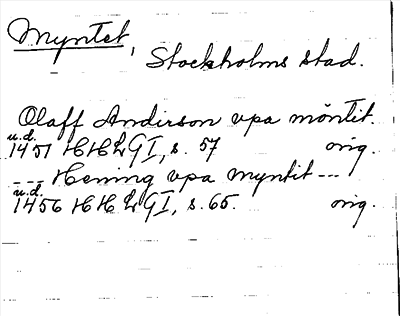 Myntet,
Stockholms stad.
Olaff Anderson vpa möntit.
u.d.
1451 HH LGI, s. 57 orig.
--- Hening vpa myntit ---
u.d.
1456 HH LGI, s. 65. orig.